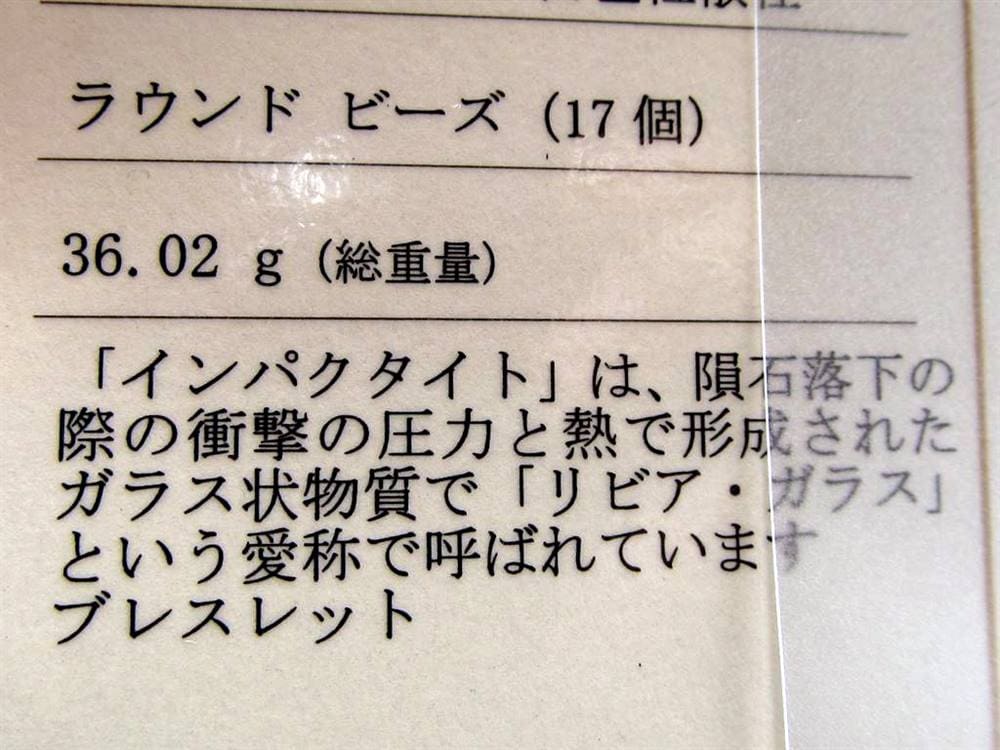 ラウンド ビーズ (17 個)
36.02 g (総重量)
「インパクタイト」は、隕石落下の
際の衝撃の圧力と熱で形成された
ガラス状物質で「リビア・ガラス」
という愛称で呼ばれています
ブレスレット